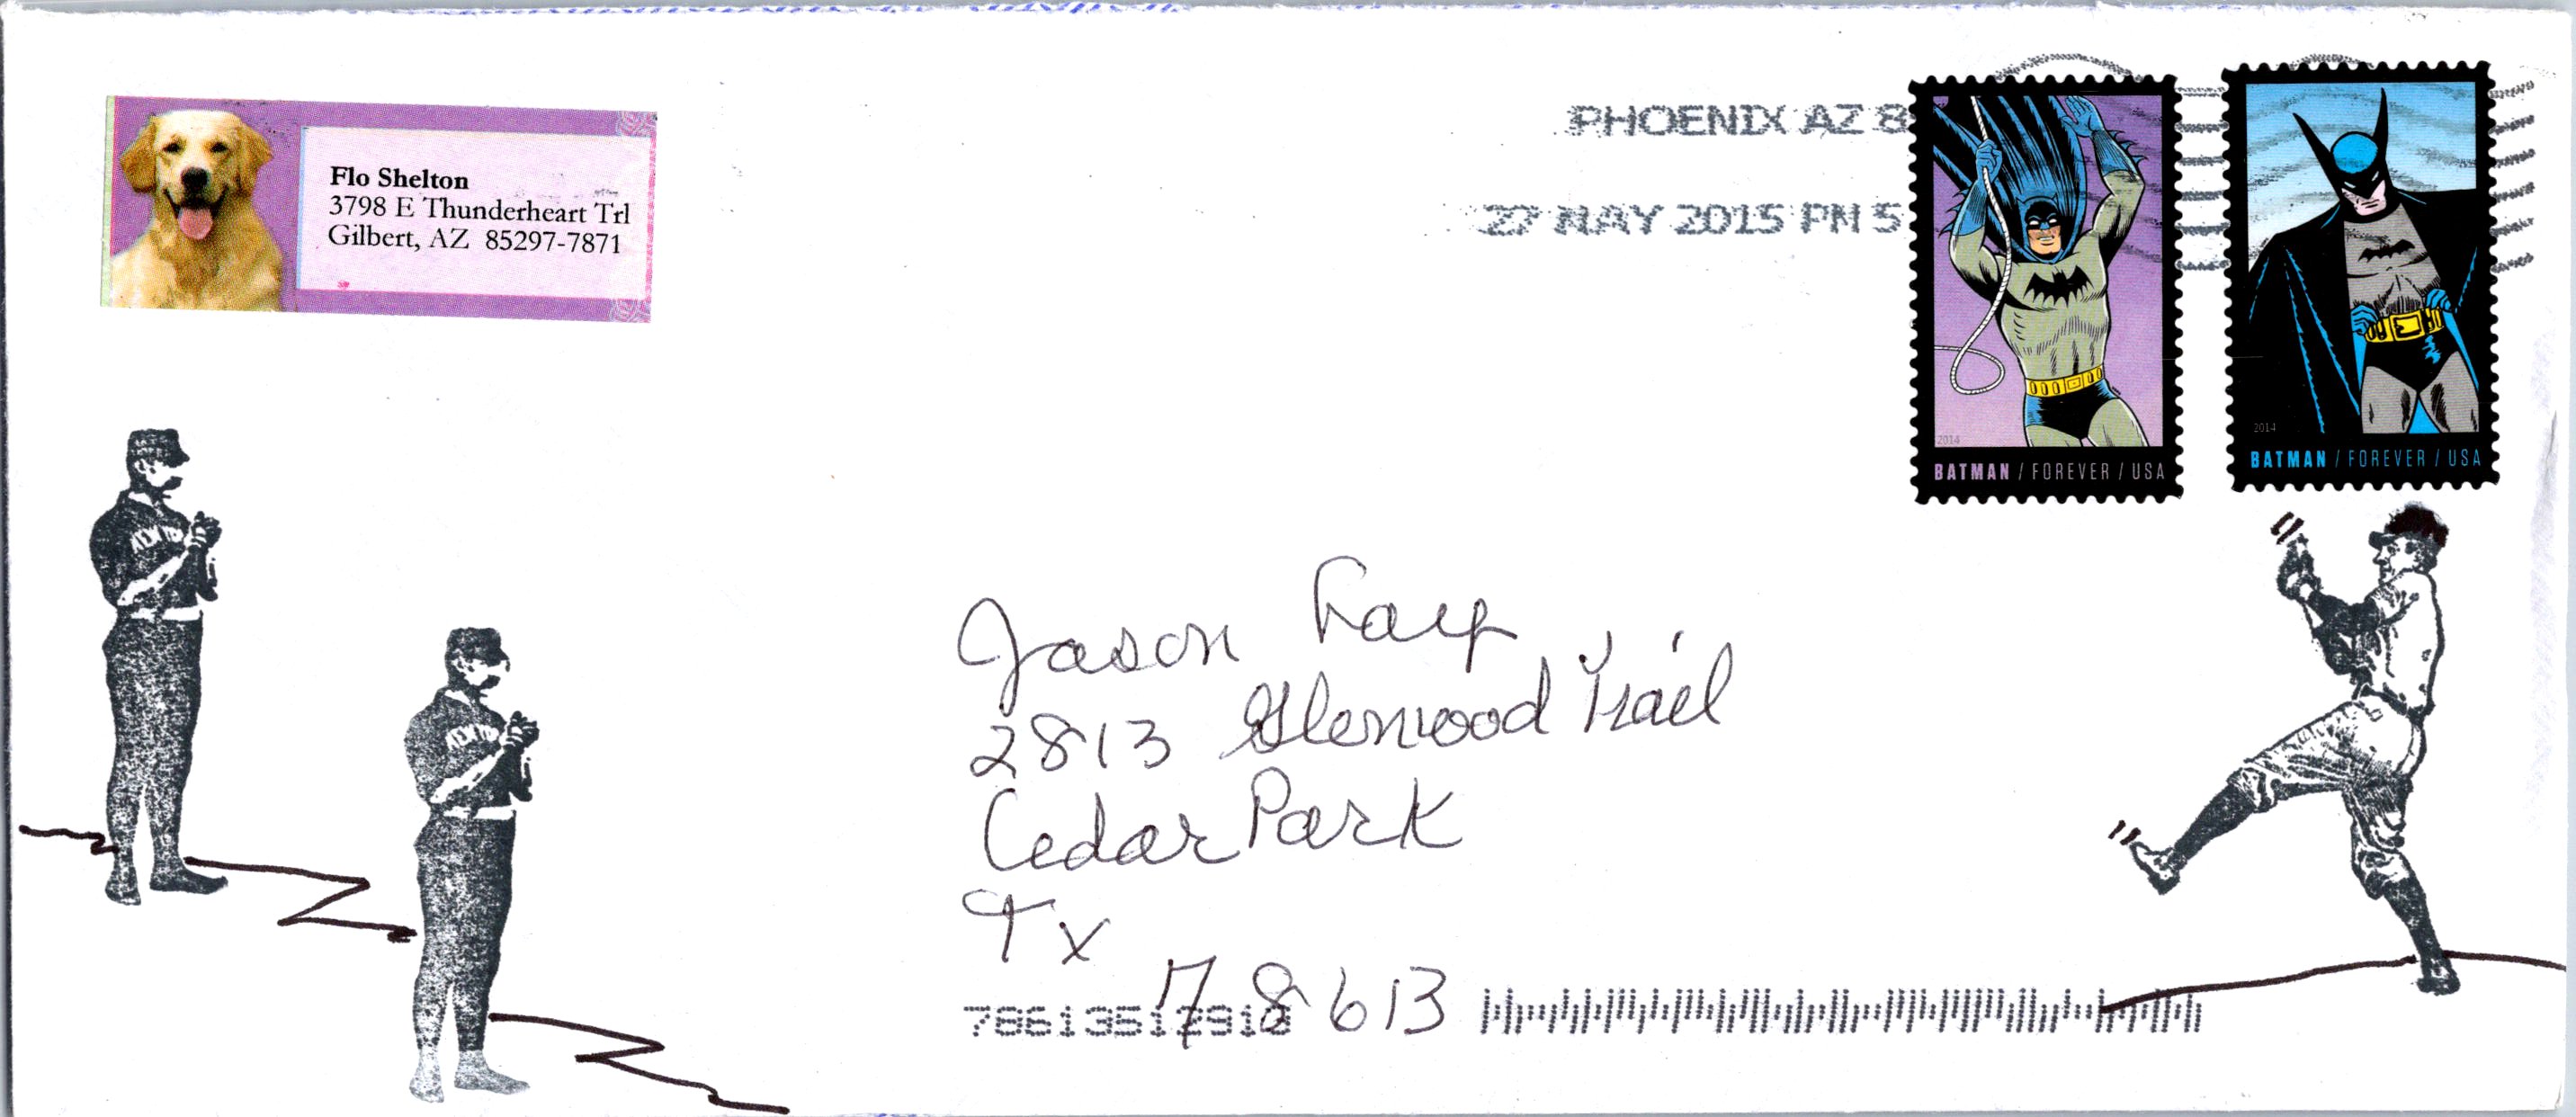 Flo Shelton
3798 E Thunderheart Trl
Gilbert, AZ 85297-7871
PHOENIX AZ 8
27 MAY 2015 PM 5
2014
BATMAN / FOREVER / USA
2014
BATMAN / FOREVER / USA
Jason
2813 Glenwood Trail
Cedar Park
Tx
78613